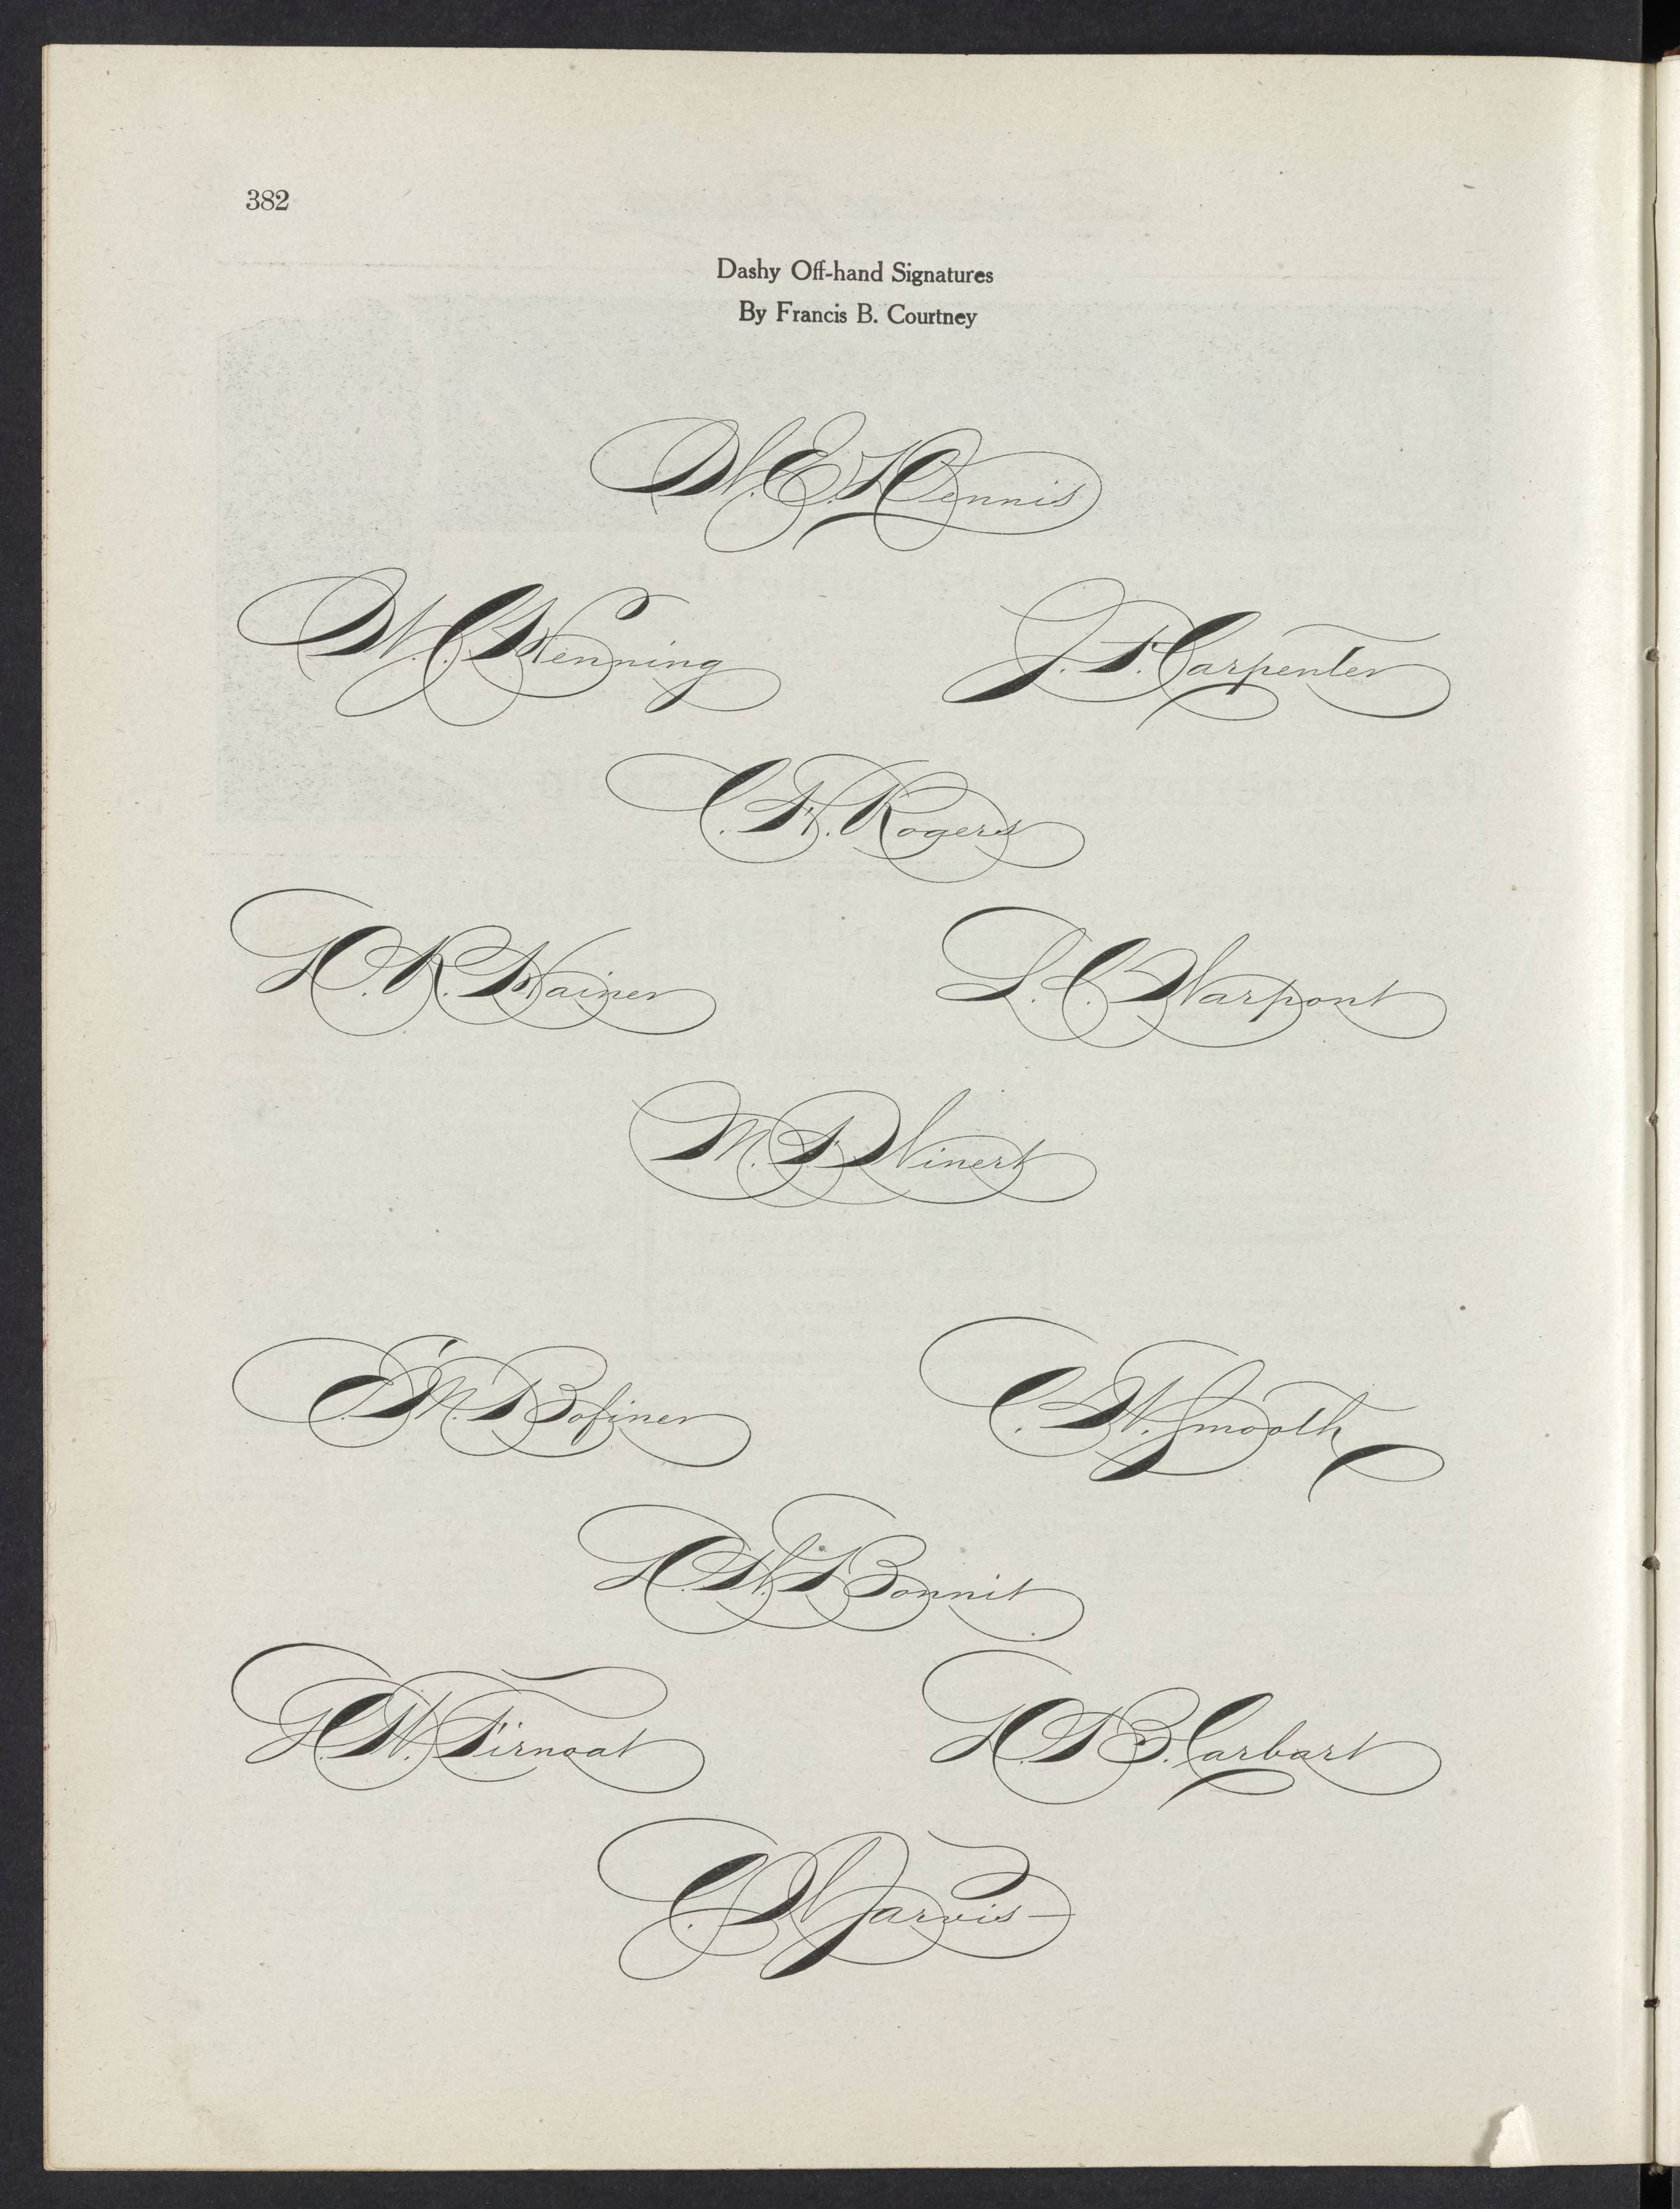 382
Dashy Off-hand Signatures
By Francis B. Courtney
W. E. Dennis
W. C. Henning
J. F. Carpenter
C. F. Rogers
R. Hainer
L. C. Warpont
M. F. Winert
E. M. Bofiner
C. W. Smooth
H. W. Bonnit
W. Firnoat
B. Carbart
C. W. Jarvis